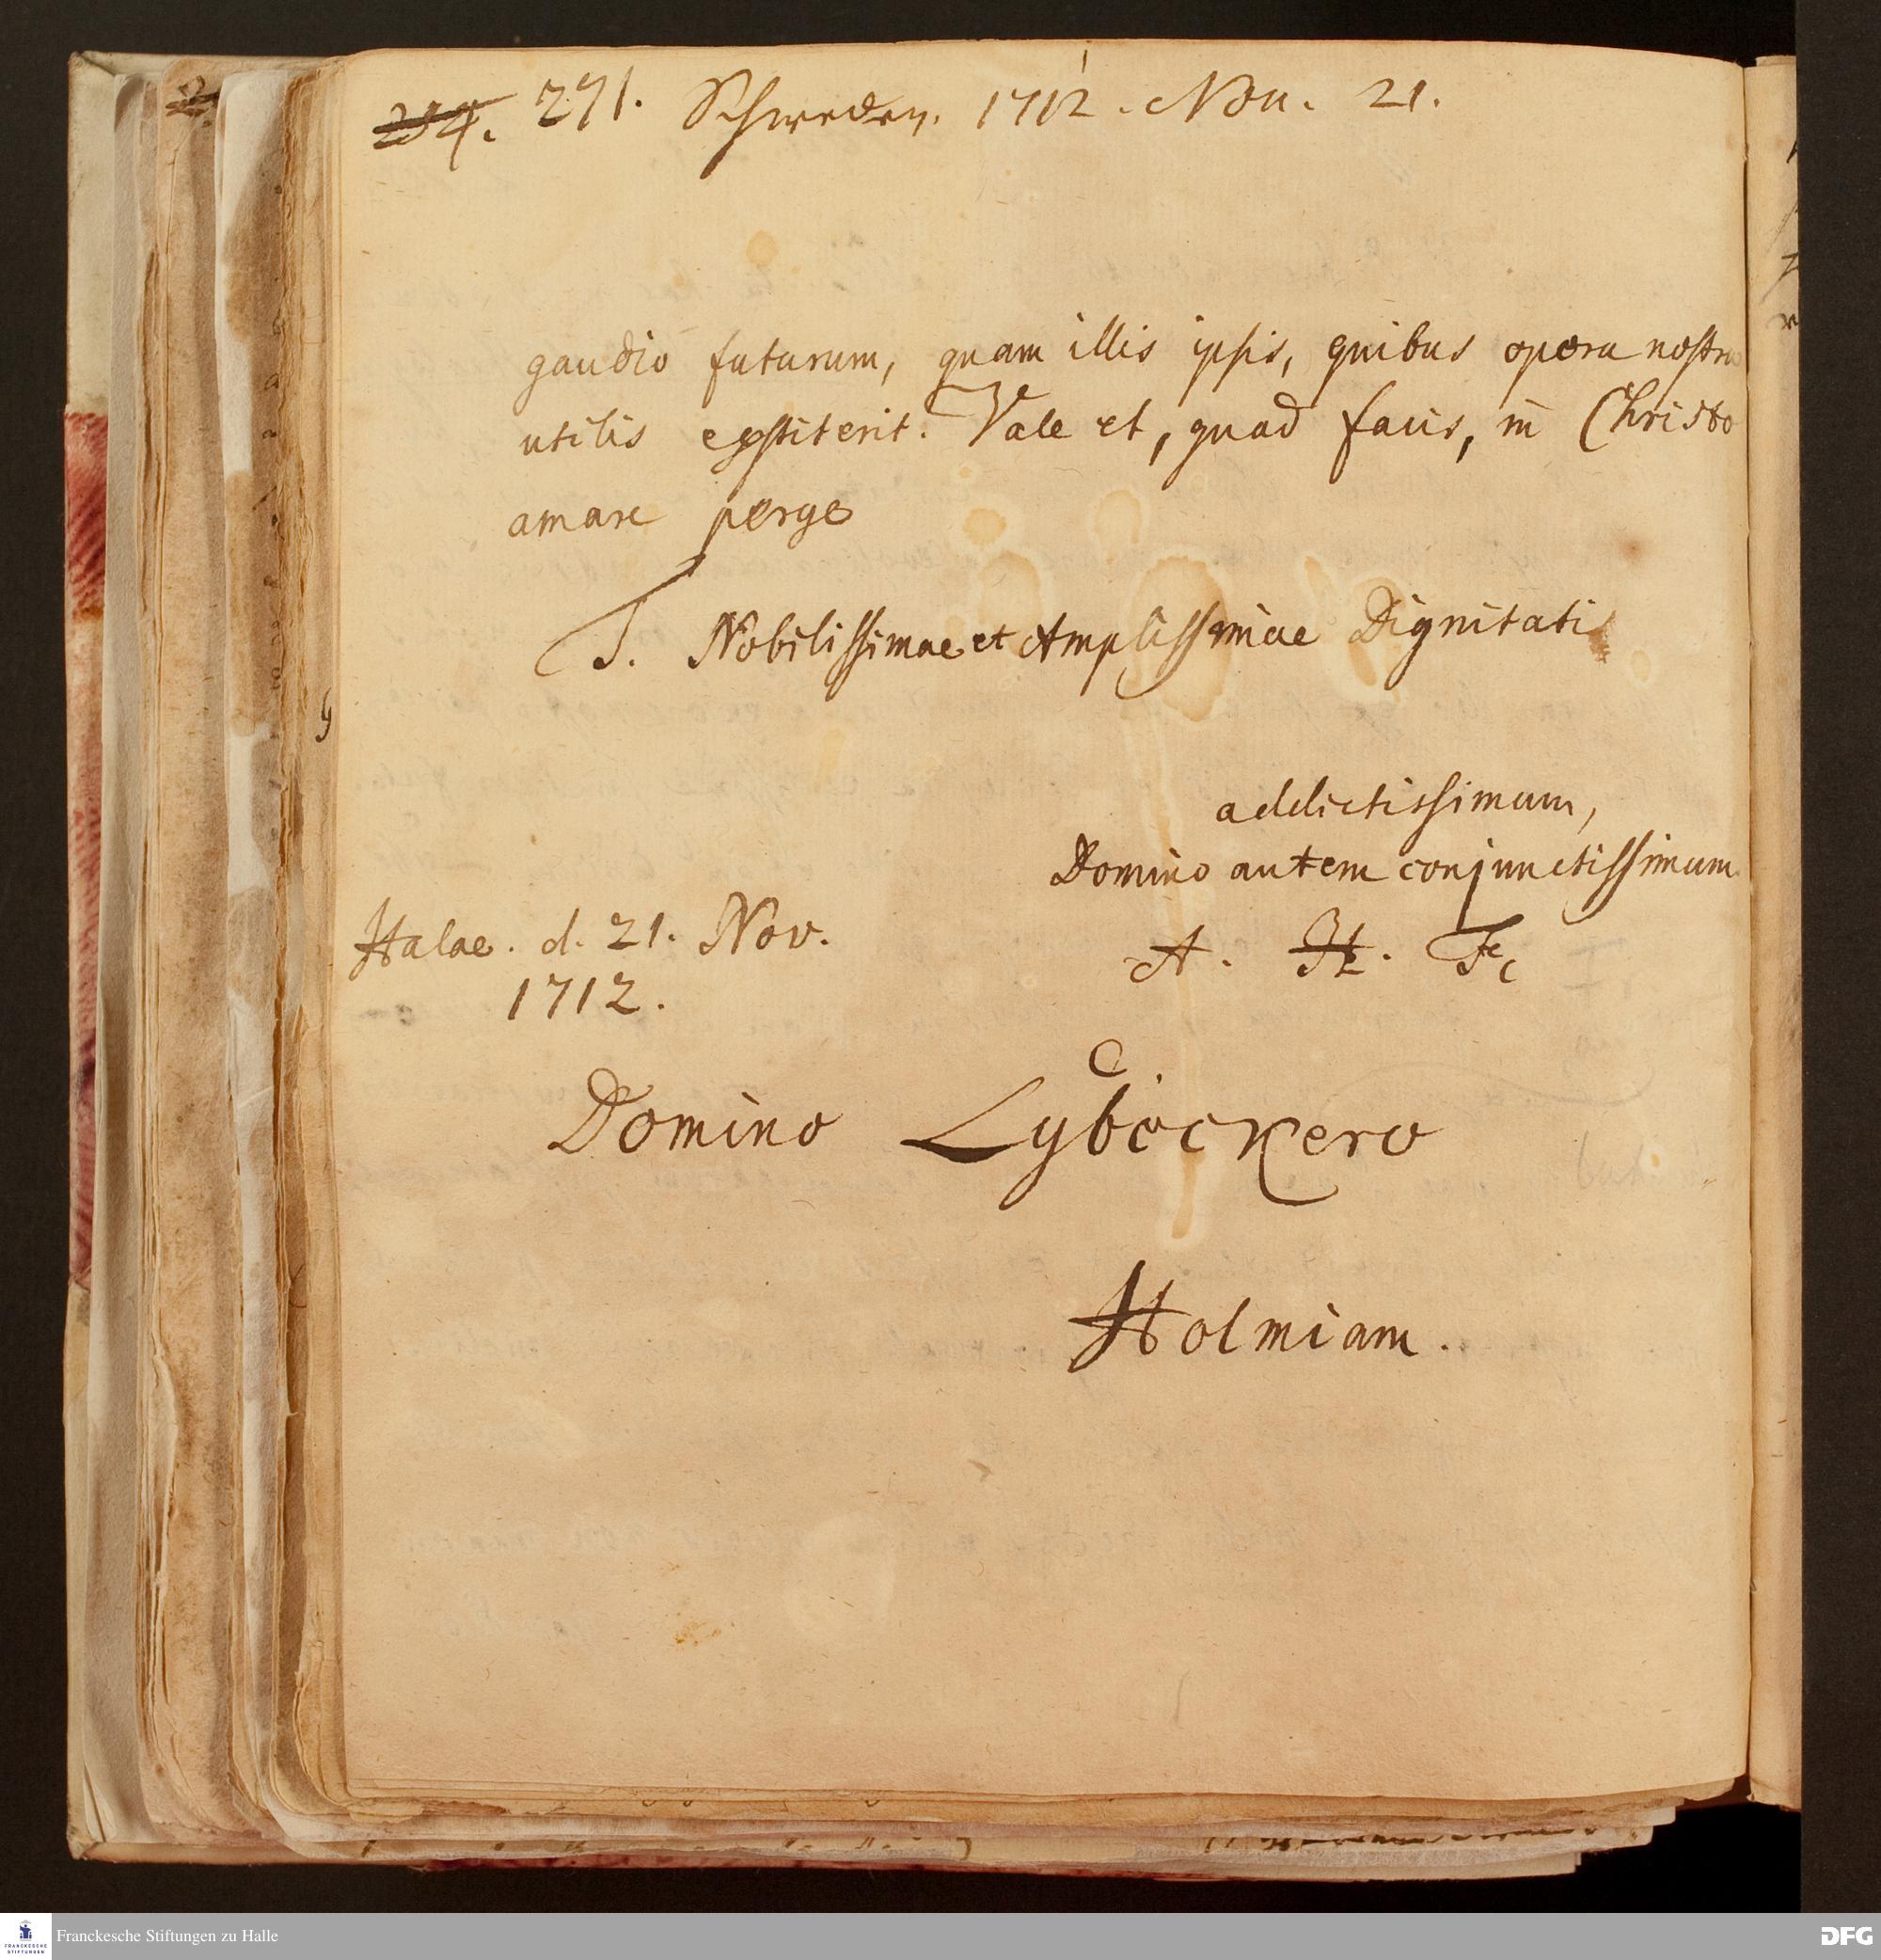 254. 271. Schweden. 1712. Nov. 21.
gaudio futurum, quam illis ipsis, quibus opera nostra
utilis exstiterit. Vale et, quod facis, in Christo
amare perge
T. Nobilissimae et Amplissimae Dignitatis
addictissimum,
Domino autem conjunctissimum
Halae. d. 21. Nov.
1712.
A. H. F.
Domino Lyböckero
Holmiam.
Franckesche Stiftungen zu Halle
FRANCKESCHE
STIFTUNGEN
DFG